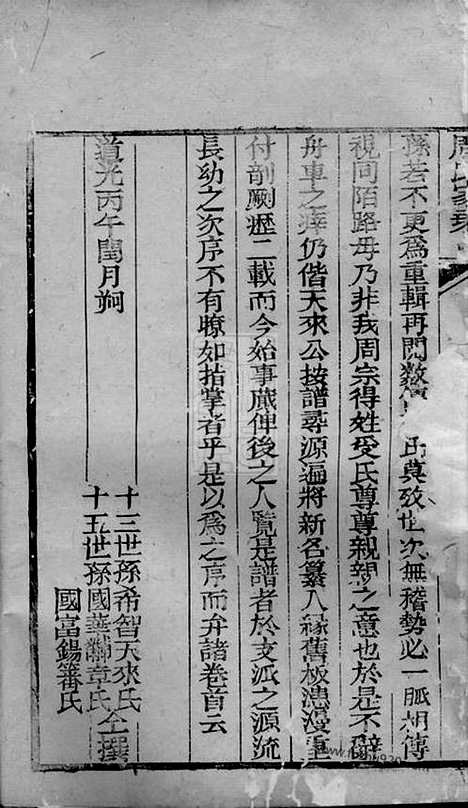 周氏家乘
孫若不更爲重輯再閱數 真致世次無稽勢必一脈相傳
視同陌路毋乃非我周宗得姓受氏尊尊親親之意也於是不辭
舟車之瘁仍偕天來公按譜尋源遍將新名纂入緣舊板漶漫重
付剖劂歷二載而今始事蕆俾後之人覽是譜者於支派之源流
長幼之次序不有瞭如指掌者乎是以爲之序而弁諸卷首云
道光丙午閏月
十三世孫希智天來氏
十五世孫國華 章氏仝撰
國富錫蕃氏